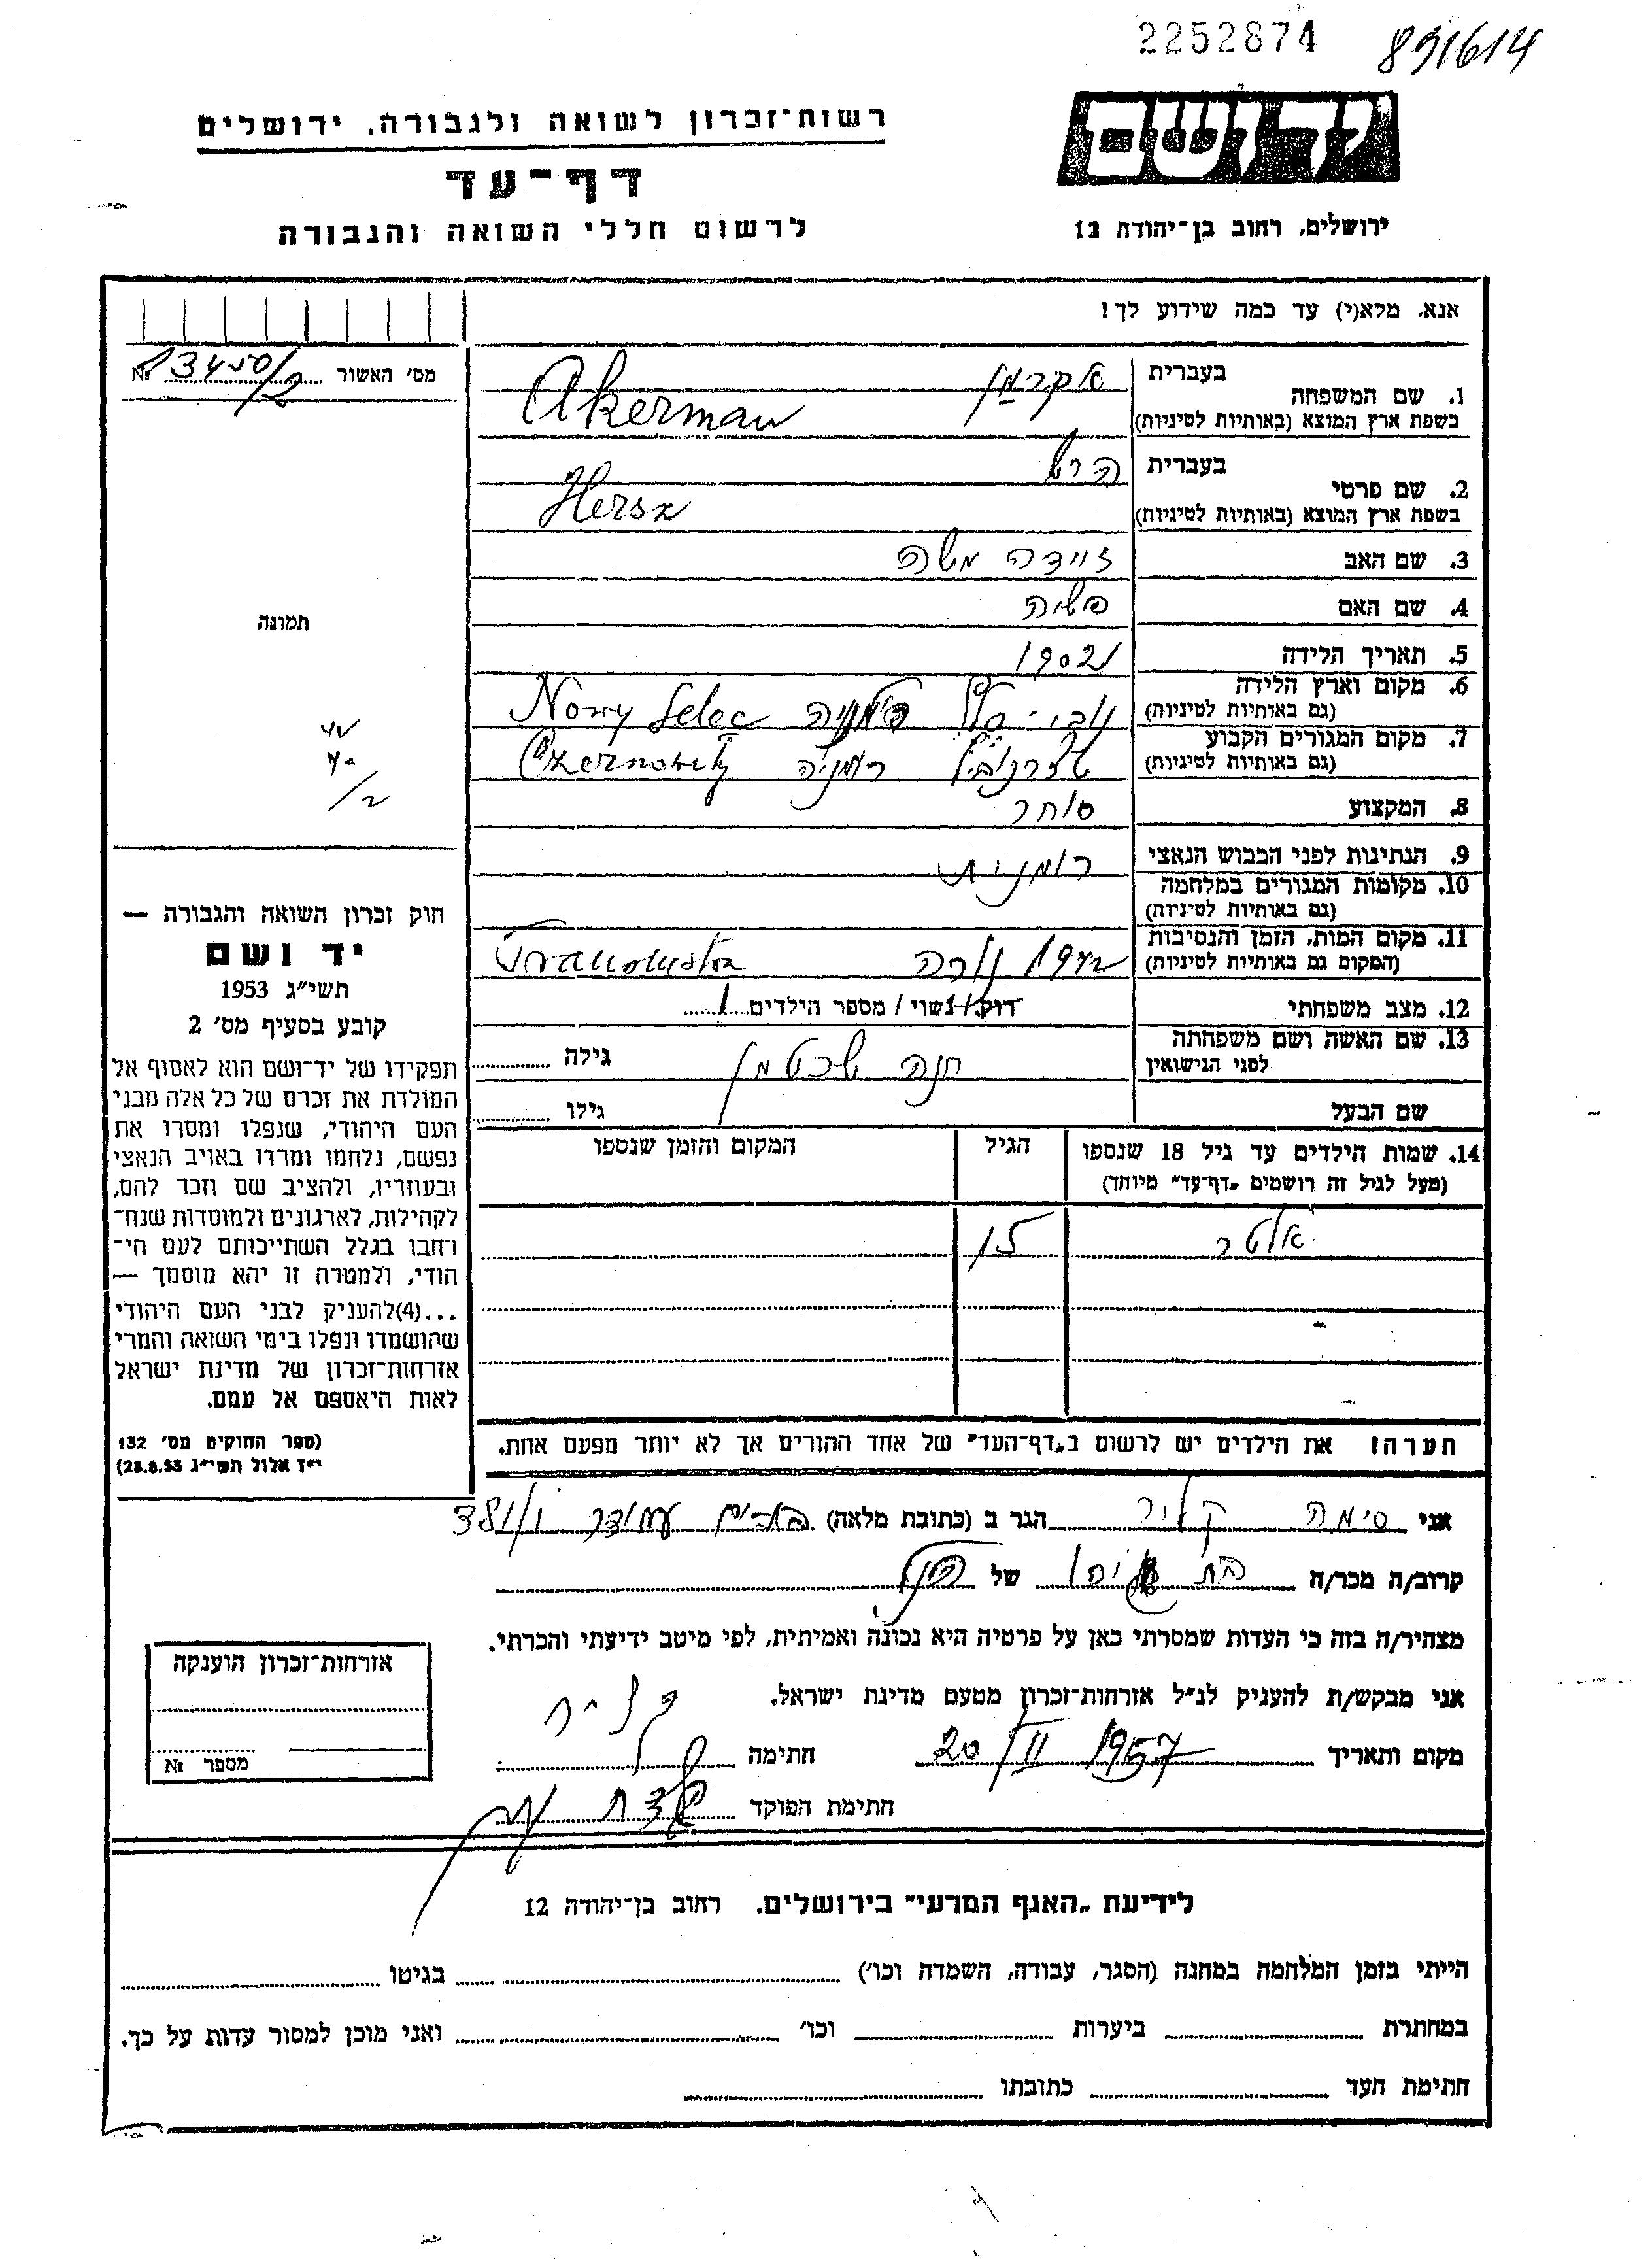 2252874 891614
רשות־זכרון לשואה ולגבורה, ירושלים
דף־עד
לרשום חללי השואה והגבורה
יד ושם
ירושלים, רחוב בן־יהודה 12
אנא, מלא(י) עד כמה שידוע לך!
מס׳ האשור 13450/2 №
1. שם המשפחה
בעברית אקרמן
בשפת ארץ המוצא (באותיות לטיניות) Akerman
2. שם פרטי
בעברית הרש
בשפת ארץ המוצא (באותיות לטיניות) Hersz
3. שם האב זיידה משה
4. שם האם
5. תאריך הלידה 1902
6. מקום וארץ הלידה
(גם באותיות לטיניות) נובי-סלץ Nowy Selec
7. מקום המגורים הקבוע
(גם באותיות לטיניות) רומניה
8. המקצוע סוחר
9. הנתינות לפני הכבוש הנאצי רומנית
10. מקומות המגורים במלחמה
(גם באותיות לטיניות)
11. מקום המות, הזמן והנסיבות
(המקום גם באותיות לטיניות) 1942 נורה
12. מצב משפחתי רווק/נשוי / מספר הילדים 1
13. שם האשה ושם משפחתה
לפני הנישואין חנה שכטמן גילה
שם הבעל גילו
14. שמות הילדים עד גיל 18 שנספו
(מעל לגיל זה רושמים „דף־עד״ מיוחד)
הגיל
המקום והזמן שנספו
אלטר 15
הערה! את הילדים יש לרשום ב„דף־העד״ של אחד ההורים אך לא יותר מפעם אחת.
תמונה
חוק זכרון השואה והגבורה —
יד ושם
תשי״ג 1953
קובע בסעיף מס׳ 2
תפקידו של יד־ושם הוא לאסוף אל
המולדת את זכרם של כל אלה מבני
העם היהודי, שנפלו ומסרו את
נפשם, נלחמו ומרדו באויב הנאצי
ובעוזריו, ולהציב שם וזכר להם,
לקהילות, לארגונים ולמוסדות שנח־
רחבו בגלל השתייכותם לעם הי־
הודי, ולמטרה זו יהא מוסמך —
...(4)להעניק לבני העם היהודי
שהושמדו ונפלו בימי השואה והמרי
אזרחות־זכרון של מדינת ישראל
לאות היאספם אל עמם.
(ספר החוקים מס׳ 132
י״ז אלול תשי״ג 28.8.53)
אני סימה הגר ב (כתובת מלאה)
קרוב/ה מכר/ה בת של הנ״ל
מצהיר/ה בזה כי העדות שמסרתי כאן על פרטיה היא נכונה ואמיתית, לפי מיטב ידיעתי והכרתי.
אני מבקש/ת להעניק לנ״ל אזרחות־זכרון מטעם מדינת ישראל.
מקום ותאריך 20/II 1957 חתימה
חתימת הפוקד
אזרחות־זכרון הוענקה
מספר №
לידיעת „האגף המדעי״ בירושלים. רחוב בן־יהודה 12
הייתי בזמן המלחמה במחנה (הסגר, עבודה, השמדה וכו׳) בגיטו
במחתרת ביערות וכו׳ ואני מוכן למסור עדות על כך.
חתימת העד כתובתו